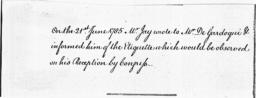 On the 21st June 1785 Mr. Jay wrote to Mr. De Gardoqui &
informed him of the Etiquette which would be observed
on his Reception by Congress.